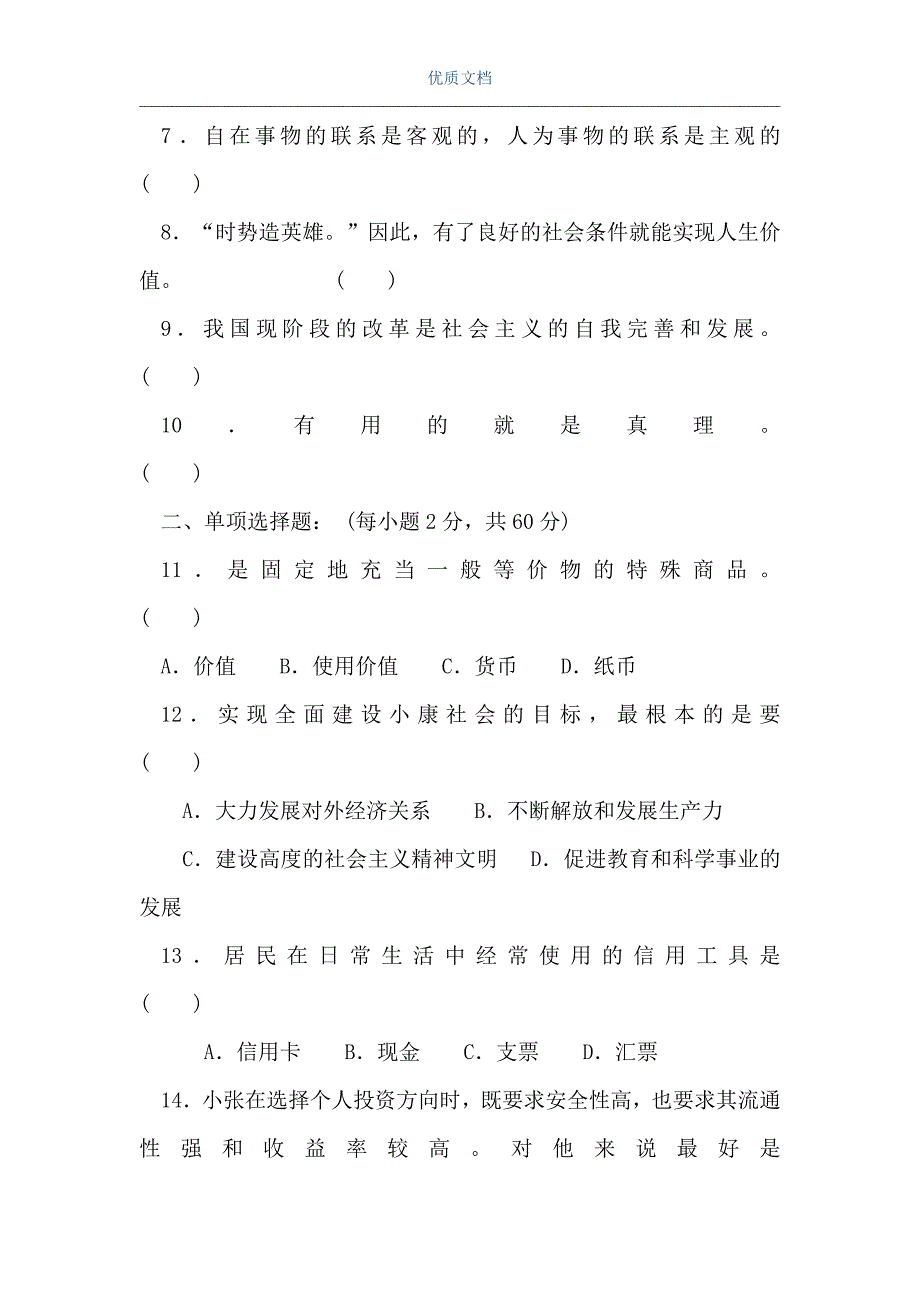 优质文档
7．自在事物的联系是客观的，人为事物的联系是主观的
(　　)
8．“时势造英雄。”因此，有了良好的社会条件就能实现人生价
值。　　　　　　　(　　)
9．我国现阶段的改革是社会主义的自我完善和发展。
(　　)
10．有用的就是真理。
(　　)
二、单项选择题： (每小题2分，共60分)
11．是固定地充当一般等价物的特殊商品。
(　　)
A．价值　　B．使用价值　　C．货币　　D．纸币
12．实现全面建设小康社会的目标，最根本的是要
(　　)
A．大力发展对外经济关系　　B．不断解放和发展生产力
C．建设高度的社会主义精神文明　 D．促进教育和科学事业的
发展
13．居民在日常生活中经常使用的信用工具是
(　　)
A．信用卡　　B．现金　　C．支票　　D．汇票
14．小张在选择个人投资方向时，既要求安全性高，也要求其流通
性强和收益率较高。对他来说最好是